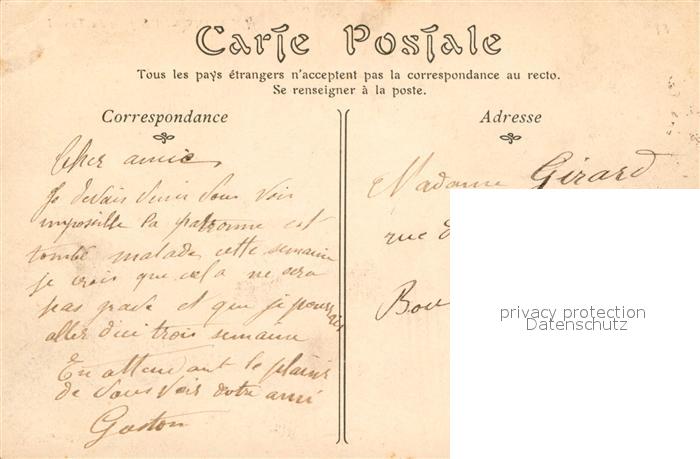 Carte Postale
Tous les pays étrangers n'acceptent pas la correspondance au recto.
Se renseigner à la poste.
Correspondance
Cher amie
Je devais venir vous voir
imposible la patronne est
tombé malade cette semaine
je crois que cela ne sera
pas grave et que je pourrais
aller dici trois semaine
En attendant le plaisir
de vous voir votre ami
Gaston
Adresse
Madame Girard
rue d
Bou
privacy protection
Datenschutz